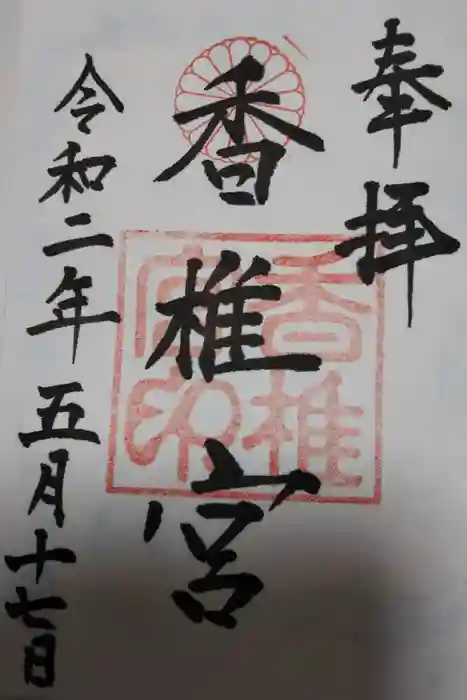 奉拝
香椎宮
香椎
宮印
令和二年五月十七日